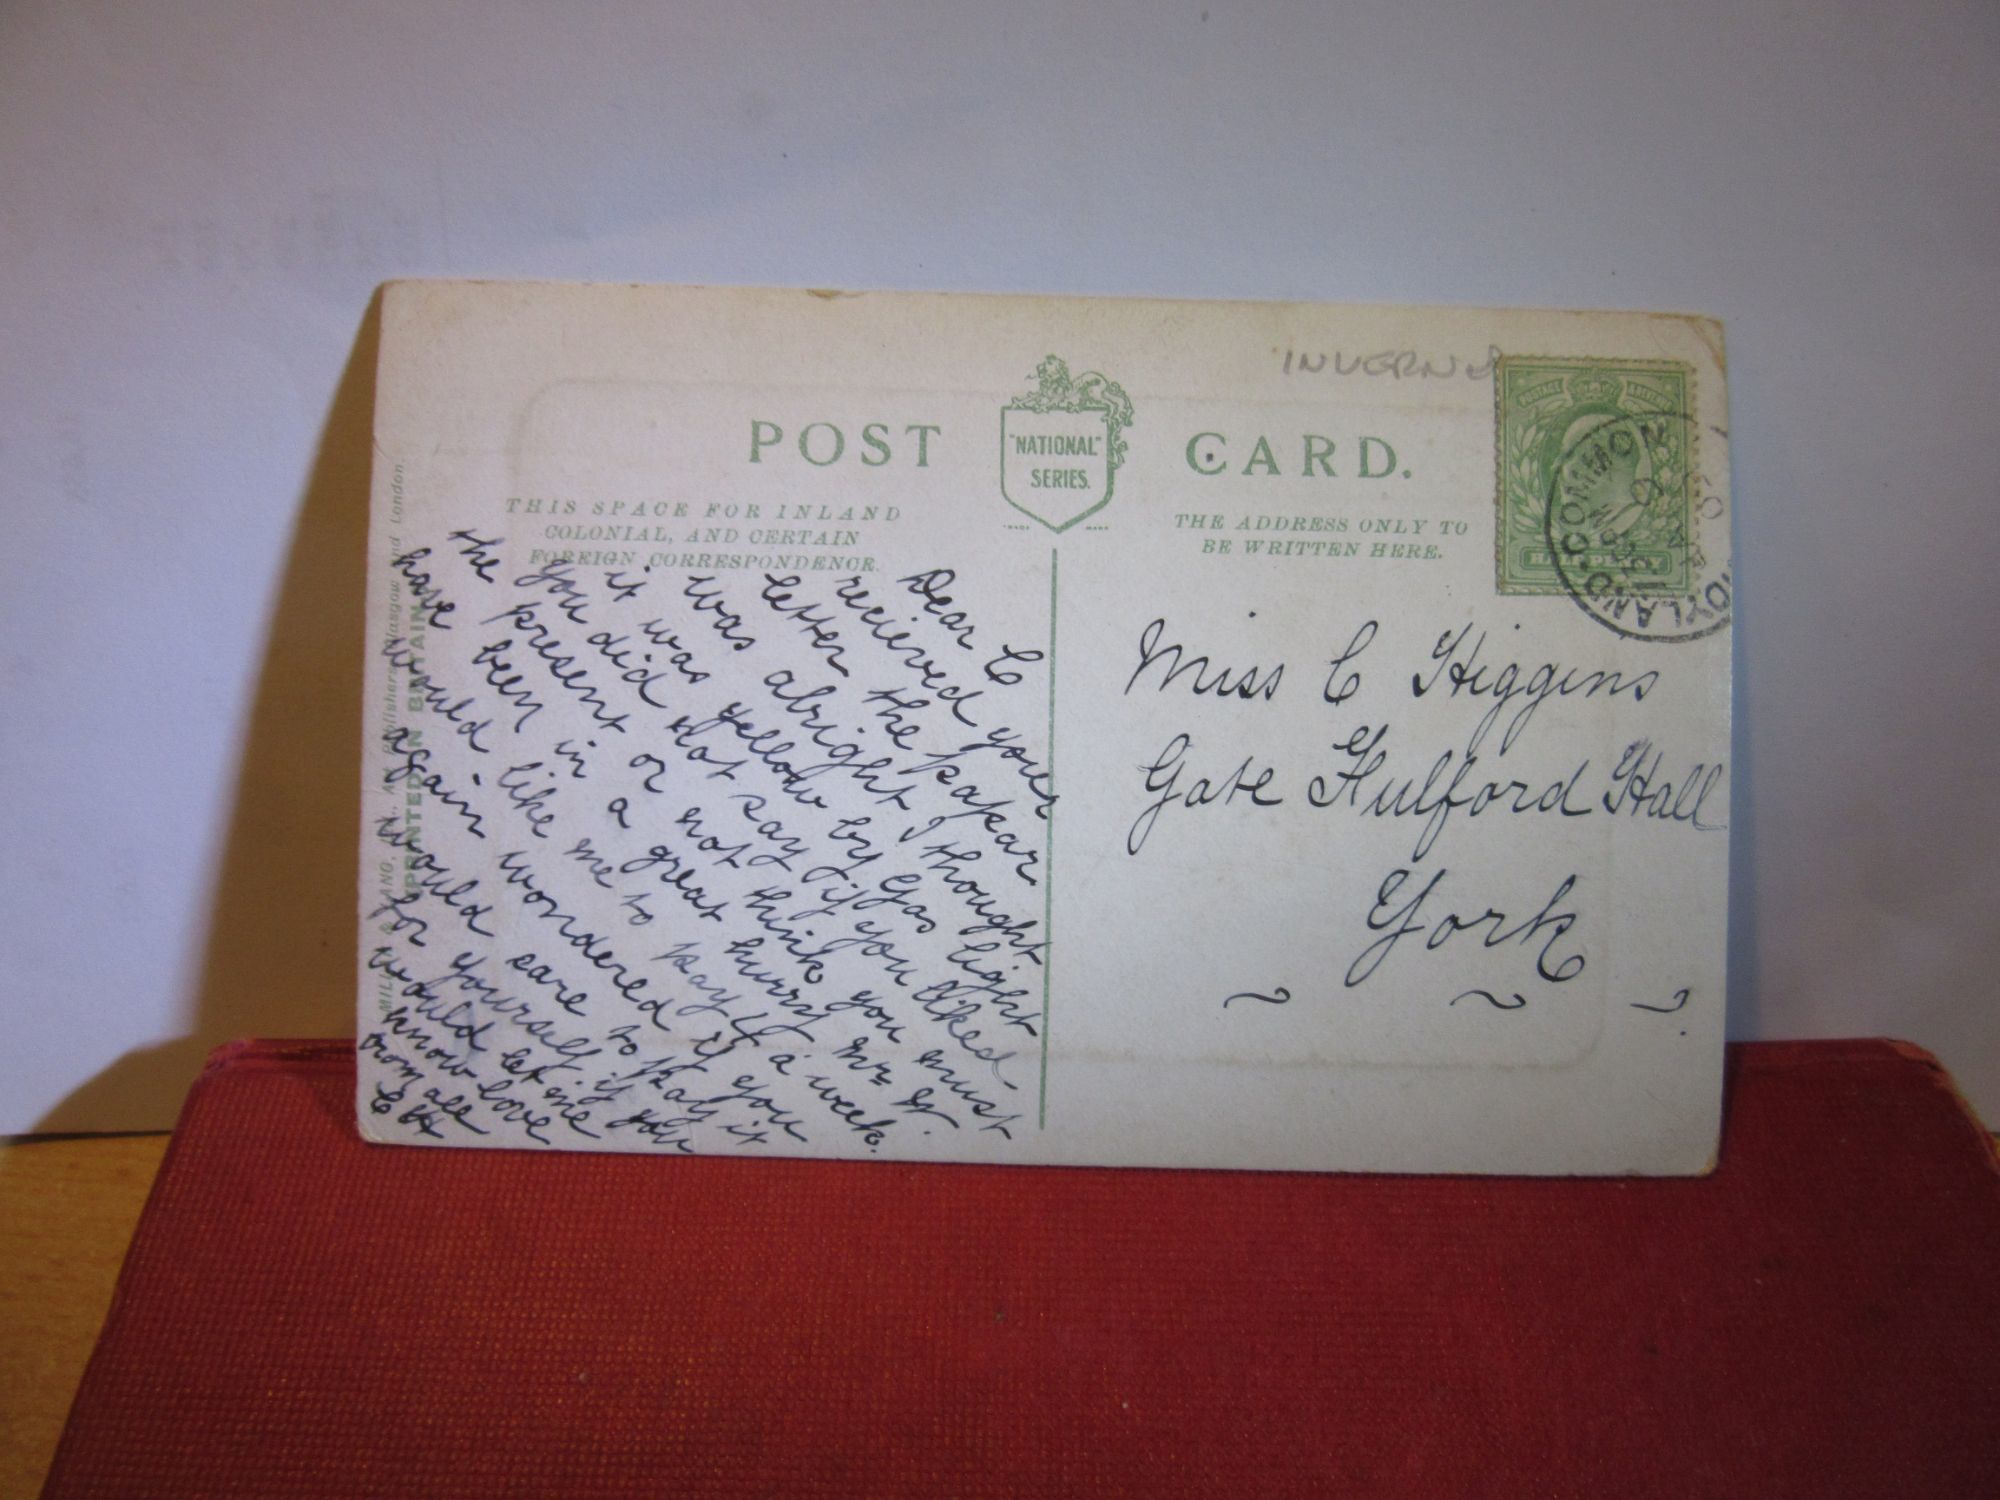 INVERN
POST CARD.
"NATIONAL"
SERIES.
THIS SPACE FOR INLAND
COLONIAL, AND CERTAIN
FOREIGN CORRESPONDENCE.
THE ADDRESS ONLY TO
BE WRITTEN HERE.
POSTAGE
HALFPENNY
HOYLAND·COMMON
Dear C
recieved your
letter the papar
was alright I thought
it was yellow by Gas light
you did not say if you liked
the present or not think you must
have been in a great hurry Mr W.
would like me to pay 4 a week.
again wondered if you
would care to pay it
for yourself if you
would let me
know love
from all
C H
Miss C Higgins
Gate Fulford Hall
York
Publishers Glasgow and London.
PRINTED IN BRITAIN